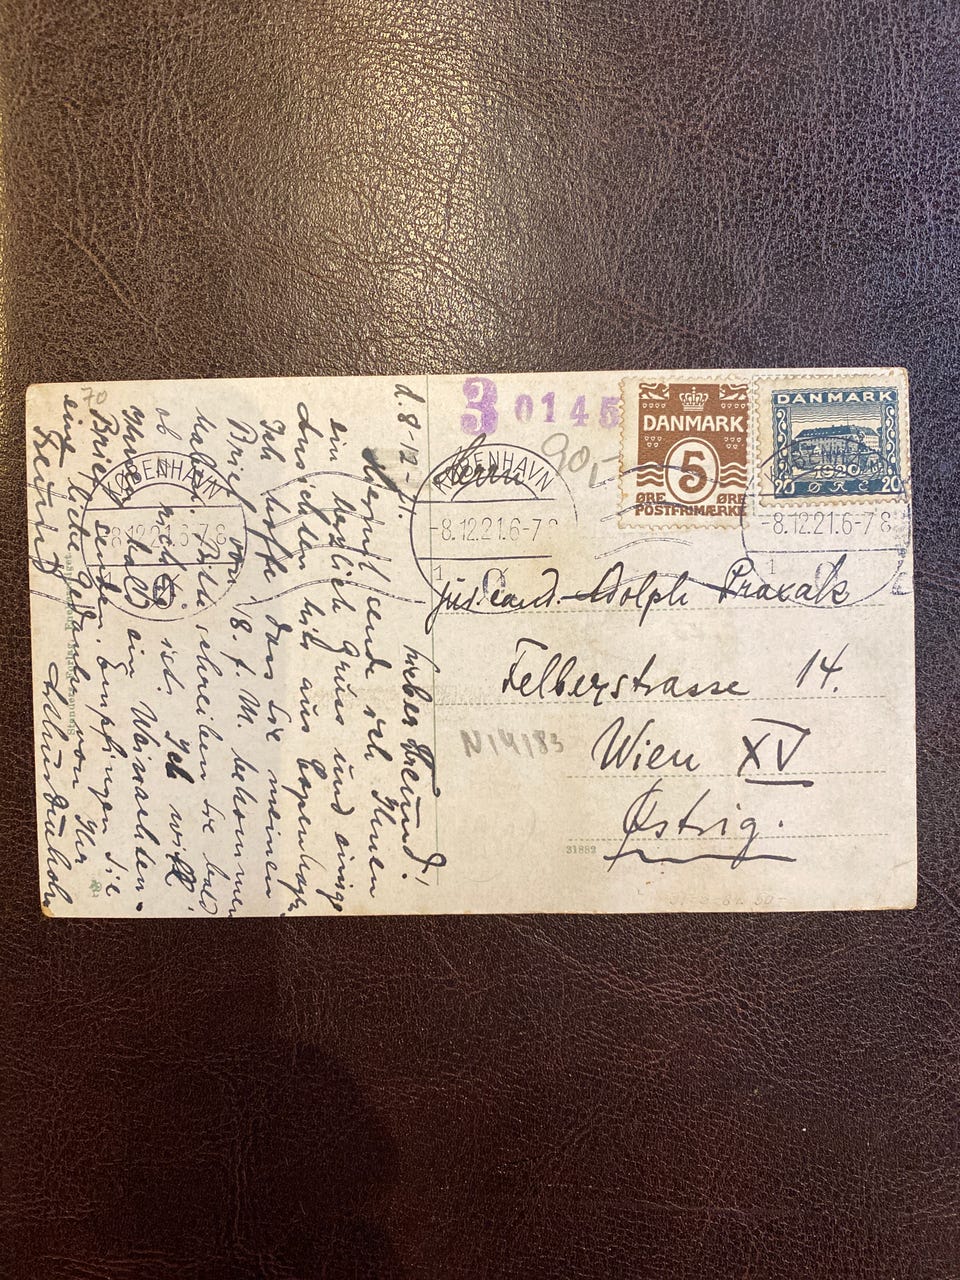 3 0145
90,-
DANMARK
5
ØRE ØRE
POSTFRIMÆRKE
DANMARK
1920
20 ØRE 20
KØBENHAVN
-8.12.21.6-7
1
KØBENHAVN
-8.12.21.6-7
KØBENHAVN
-8.12.21.6-7 8
1
Herrn
jus. cand. Adolph Praxak
Felberstrasse 14.
Wien XV
Østrig.
N14183
31882
70
d. 8-12-21.
Lieber Freund!,
Hiermit sende ich Ihnen
ein herzlich Gruss und einige
Ansichten hier aus Copenhagen
Ich hoffe dass Sie meinen
Brief vom 8. f. M. bekommen
haben. Bitte schreiben Sie bald
ob nicht. Ich will
Ihnen bald ein Weinachten-
Brief senden. Empfingen Sie
eine liebe von Ihr
Freund